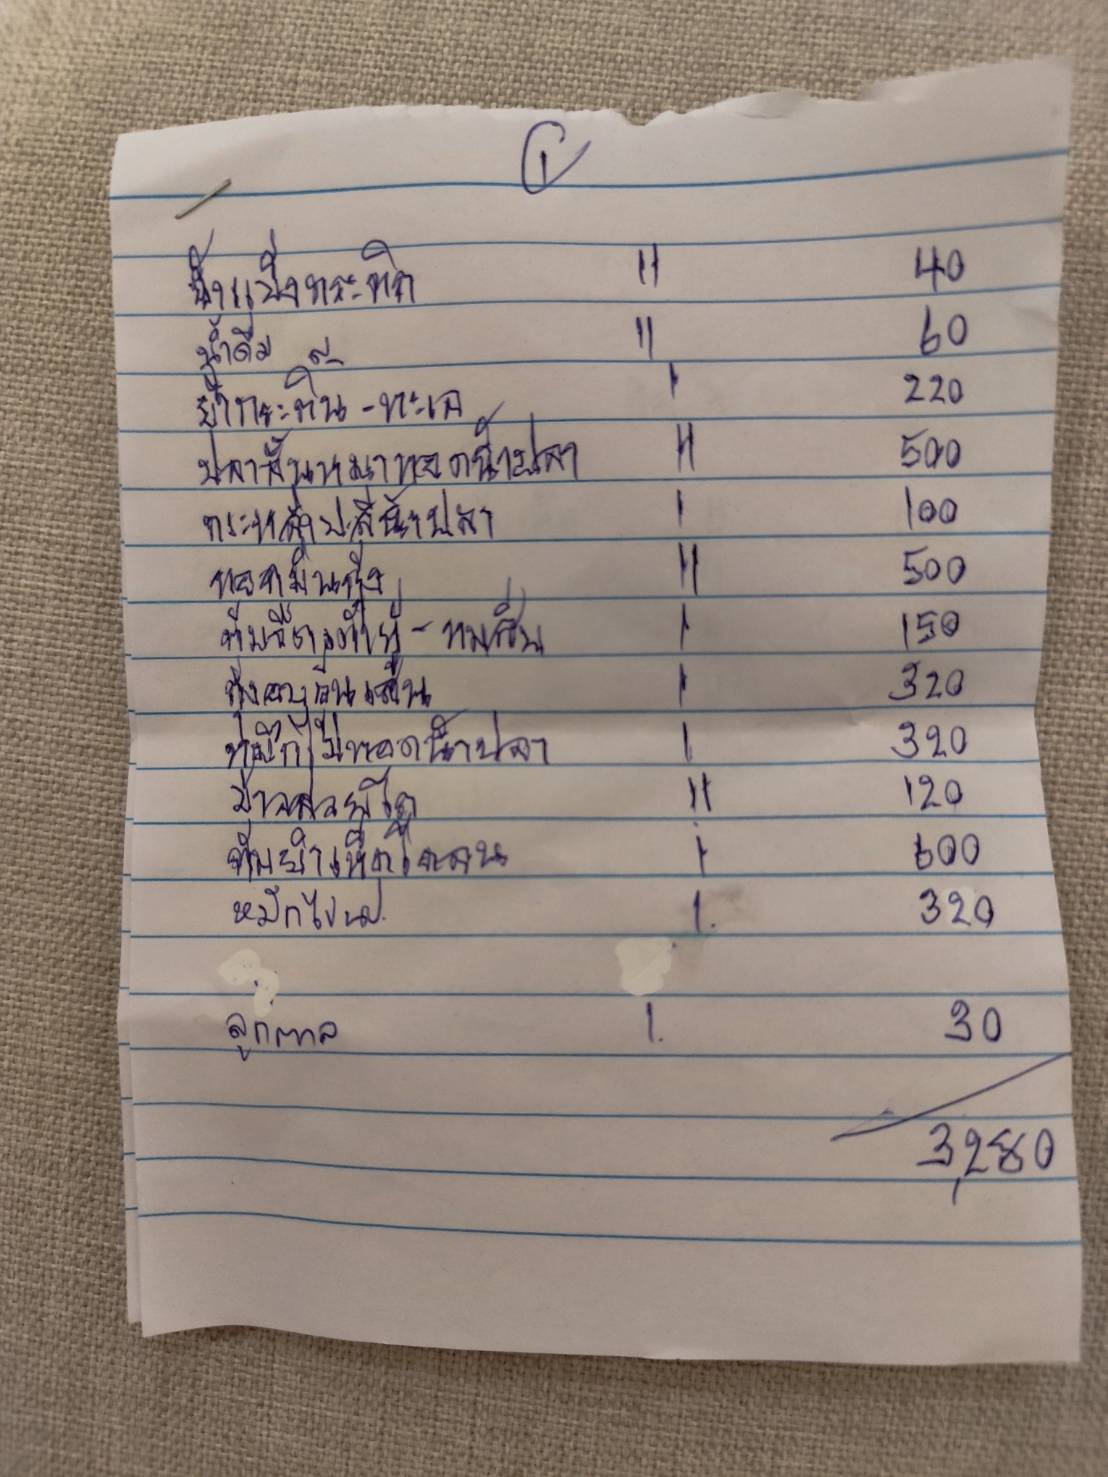 1
น้ำแข็งกระติก 11 40
น้ำดื่ม 11 60
ยำกระถิน-ทะเล 1 220
ปลา ทอดน้ำปลา 11 500
กระหล่ำปลีน้ำปลา 1 100
ทอดมันกุ้ง 11 500
ต้มจืดเต้าหู้-หมสับ 1 150
กุ้งอบวุ้นเส้น 1 320
หมึกไข่ทอดน้ำปลา 1 320
ข้าวสวยโถ 11 120
ต้มยำเห็ดโคลน 1 600
หมึกไข่นป. 1. 320
ลูกตาล 1. 30
3,280